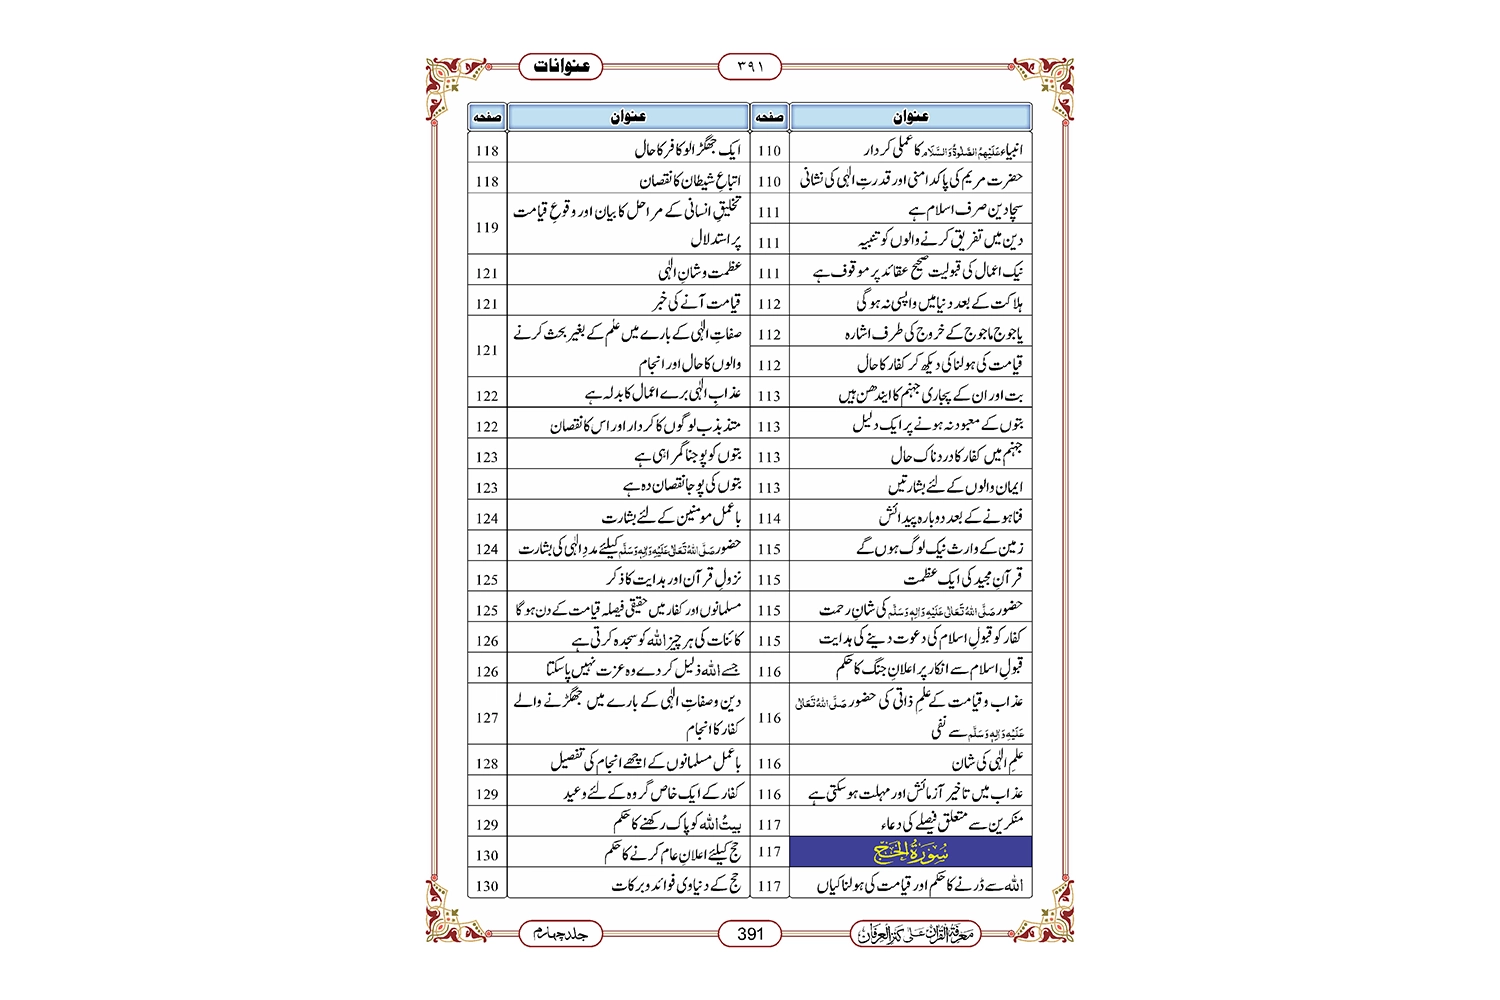 عنوانات
۳۹۱
عنوان صفحہ
انبیاء عَلَیْہِمُ الصَّلٰوۃُ وَالسَّلَام کا عملی کردار 110
حضرت مریم کی پاکدامنی اور قدرتِ الٰہی کی نشانی 110
سچا دین صرف اسلام ہے 111
دین میں تفریق کرنے والوں کو تنبیہ 111
نیک اعمال کی قبولیت صحیح عقائد پر موقوف ہے 111
ہلاکت کے بعد دنیا میں واپسی نہ ہوگی 112
یاجوج ماجوج کے خروج کی طرف اشارہ 112
قیامت کی ہولناکی دیکھ کر کفار کا حال 112
بت اور ان کے پجاری جہنم کا ایندھن ہیں 113
بتوں کے معبود نہ ہونے پر ایک دلیل 113
جہنم میں کفار کا دردناک حال 113
ایمان والوں کے لئے بشارتیں 113
فنا ہونے کے بعد دوبارہ پیدائش 114
زمین کے وارث نیک لوگ ہوں گے 115
قرآنِ مجید کی ایک عظمت 115
حضور صَلَّی اللہُ تَعَالٰی عَلَیْہِ وَاٰلِہٖ وَسَلَّم کی شانِ رحمت 115
کفار کو قبولِ اسلام کی دعوت دینے کی ہدایت 115
قبولِ اسلام سے انکار پر اعلانِ جنگ کا حکم 116
عذاب و قیامت کے علمِ ذاتی کی حضور صَلَّی اللہُ تَعَالٰی
عَلَیْہِ وَاٰلِہٖ وَسَلَّم سے نفی 116
علمِ الٰہی کی شان 116
عذاب میں تاخیر آزمائش اور مہلت ہوسکتی ہے 116
منکرین سے متعلق فیصلے کی دعاء 117
سُوْرَۃُ الْحَجّ 117
اللہ سے ڈرنے کا حکم اور قیامت کی ہولناکیاں 117
عنوان صفحہ
ایک جھگڑالو کافر کا حال 118
اتباعِ شیطان کا نقصان 118
تخلیقِ انسانی کے مراحل کا بیان اور وقوعِ قیامت
پر استدلال 119
عظمت و شانِ الٰہی 121
قیامت آنے کی خبر 121
صفاتِ الٰہی کے بارے میں علم کے بغیر بحث کرنے
والوں کا حال اور انجام 121
عذابِ الٰہی برے اعمال کا بدلہ ہے 122
متذبذب لوگوں کا کردار اور اس کا نقصان 122
بتوں کو پوجنا گمراہی ہے 123
بتوں کی پوجا نقصان دہ ہے 123
باعمل مومنین کے لئے بشارت 124
حضور صَلَّی اللہُ تَعَالٰی عَلَیْہِ وَاٰلِہٖ وَسَلَّم کیلئے مددِ الٰہی کی بشارت 124
نزولِ قرآن اور ہدایت کا ذکر 125
مسلمانوں اور کفار میں حقیقی فیصلہ قیامت کے دن ہوگا 125
کائنات کی ہر چیز اللہ کو سجدہ کرتی ہے 126
جسے اللہ ذلیل کردے وہ عزت نہیں پاسکتا 126
دین و صفاتِ الٰہی کے بارے میں جھگڑنے والے
کفار کا انجام 127
باعمل مسلمانوں کے اچھے انجام کی تفصیل 128
کفار کے ایک خاص گروہ کے لئے وعید 129
بیتُ اللہ کو پاک رکھنے کا حکم 129
حج کیلئے اعلانِ عام کرنے کا حکم 130
حج کے دنیاوی فوائد و برکات 130
معرفۃ القرآن علی کنز العرفان
391
جلد چہارم